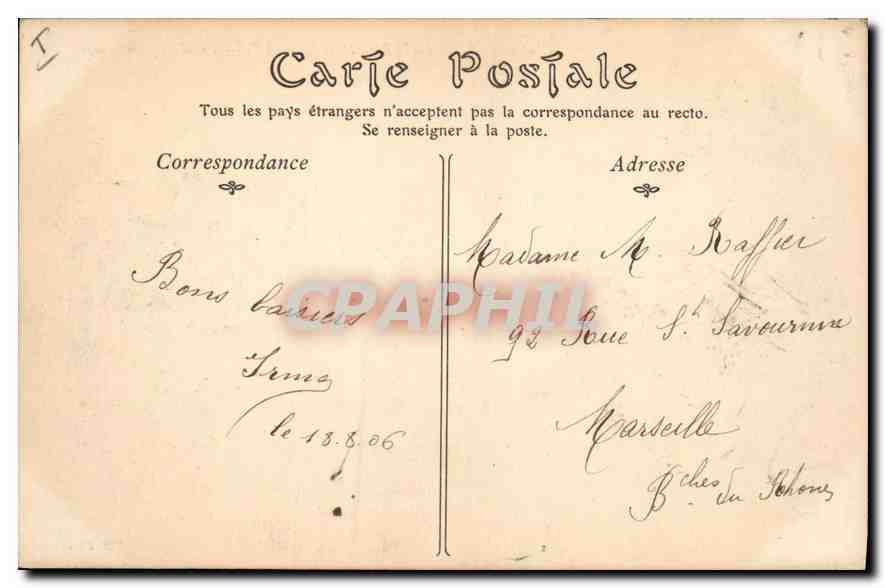 T
Carte Postale
Tous les pays étrangers n'acceptent pas la correspondance au recto.
Se renseigner à la poste.
Correspondance
Adresse
Bons baisers
Irma
le 18.8.06
Madame M. Raffier
92 Rue St Savournin
Marseille
Bches du Rhone
CPAPHIL